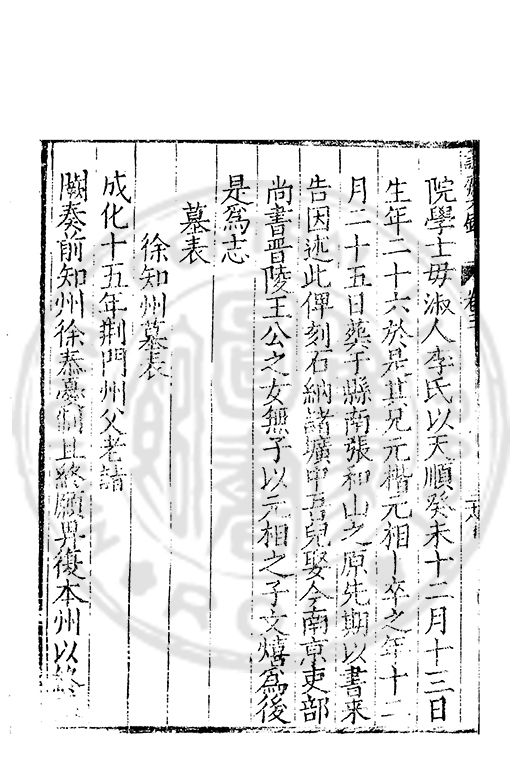 院學士毋淑人李氏以天順癸未十二月十三日
生年二十六於是其兄元楷元相卜卒之年十二
月二十五日葬于縣南張和山之原先期以書来
告因述此俾刻石納諸壙中吾兒娶今南京吏部
尚書晉陵王公之女無子以元相之子文熺為後
是為志
墓表
徐知州墓表
成化十五年荆門州父老請
闕奏前知州徐泰憂制且終願畀復本州以終